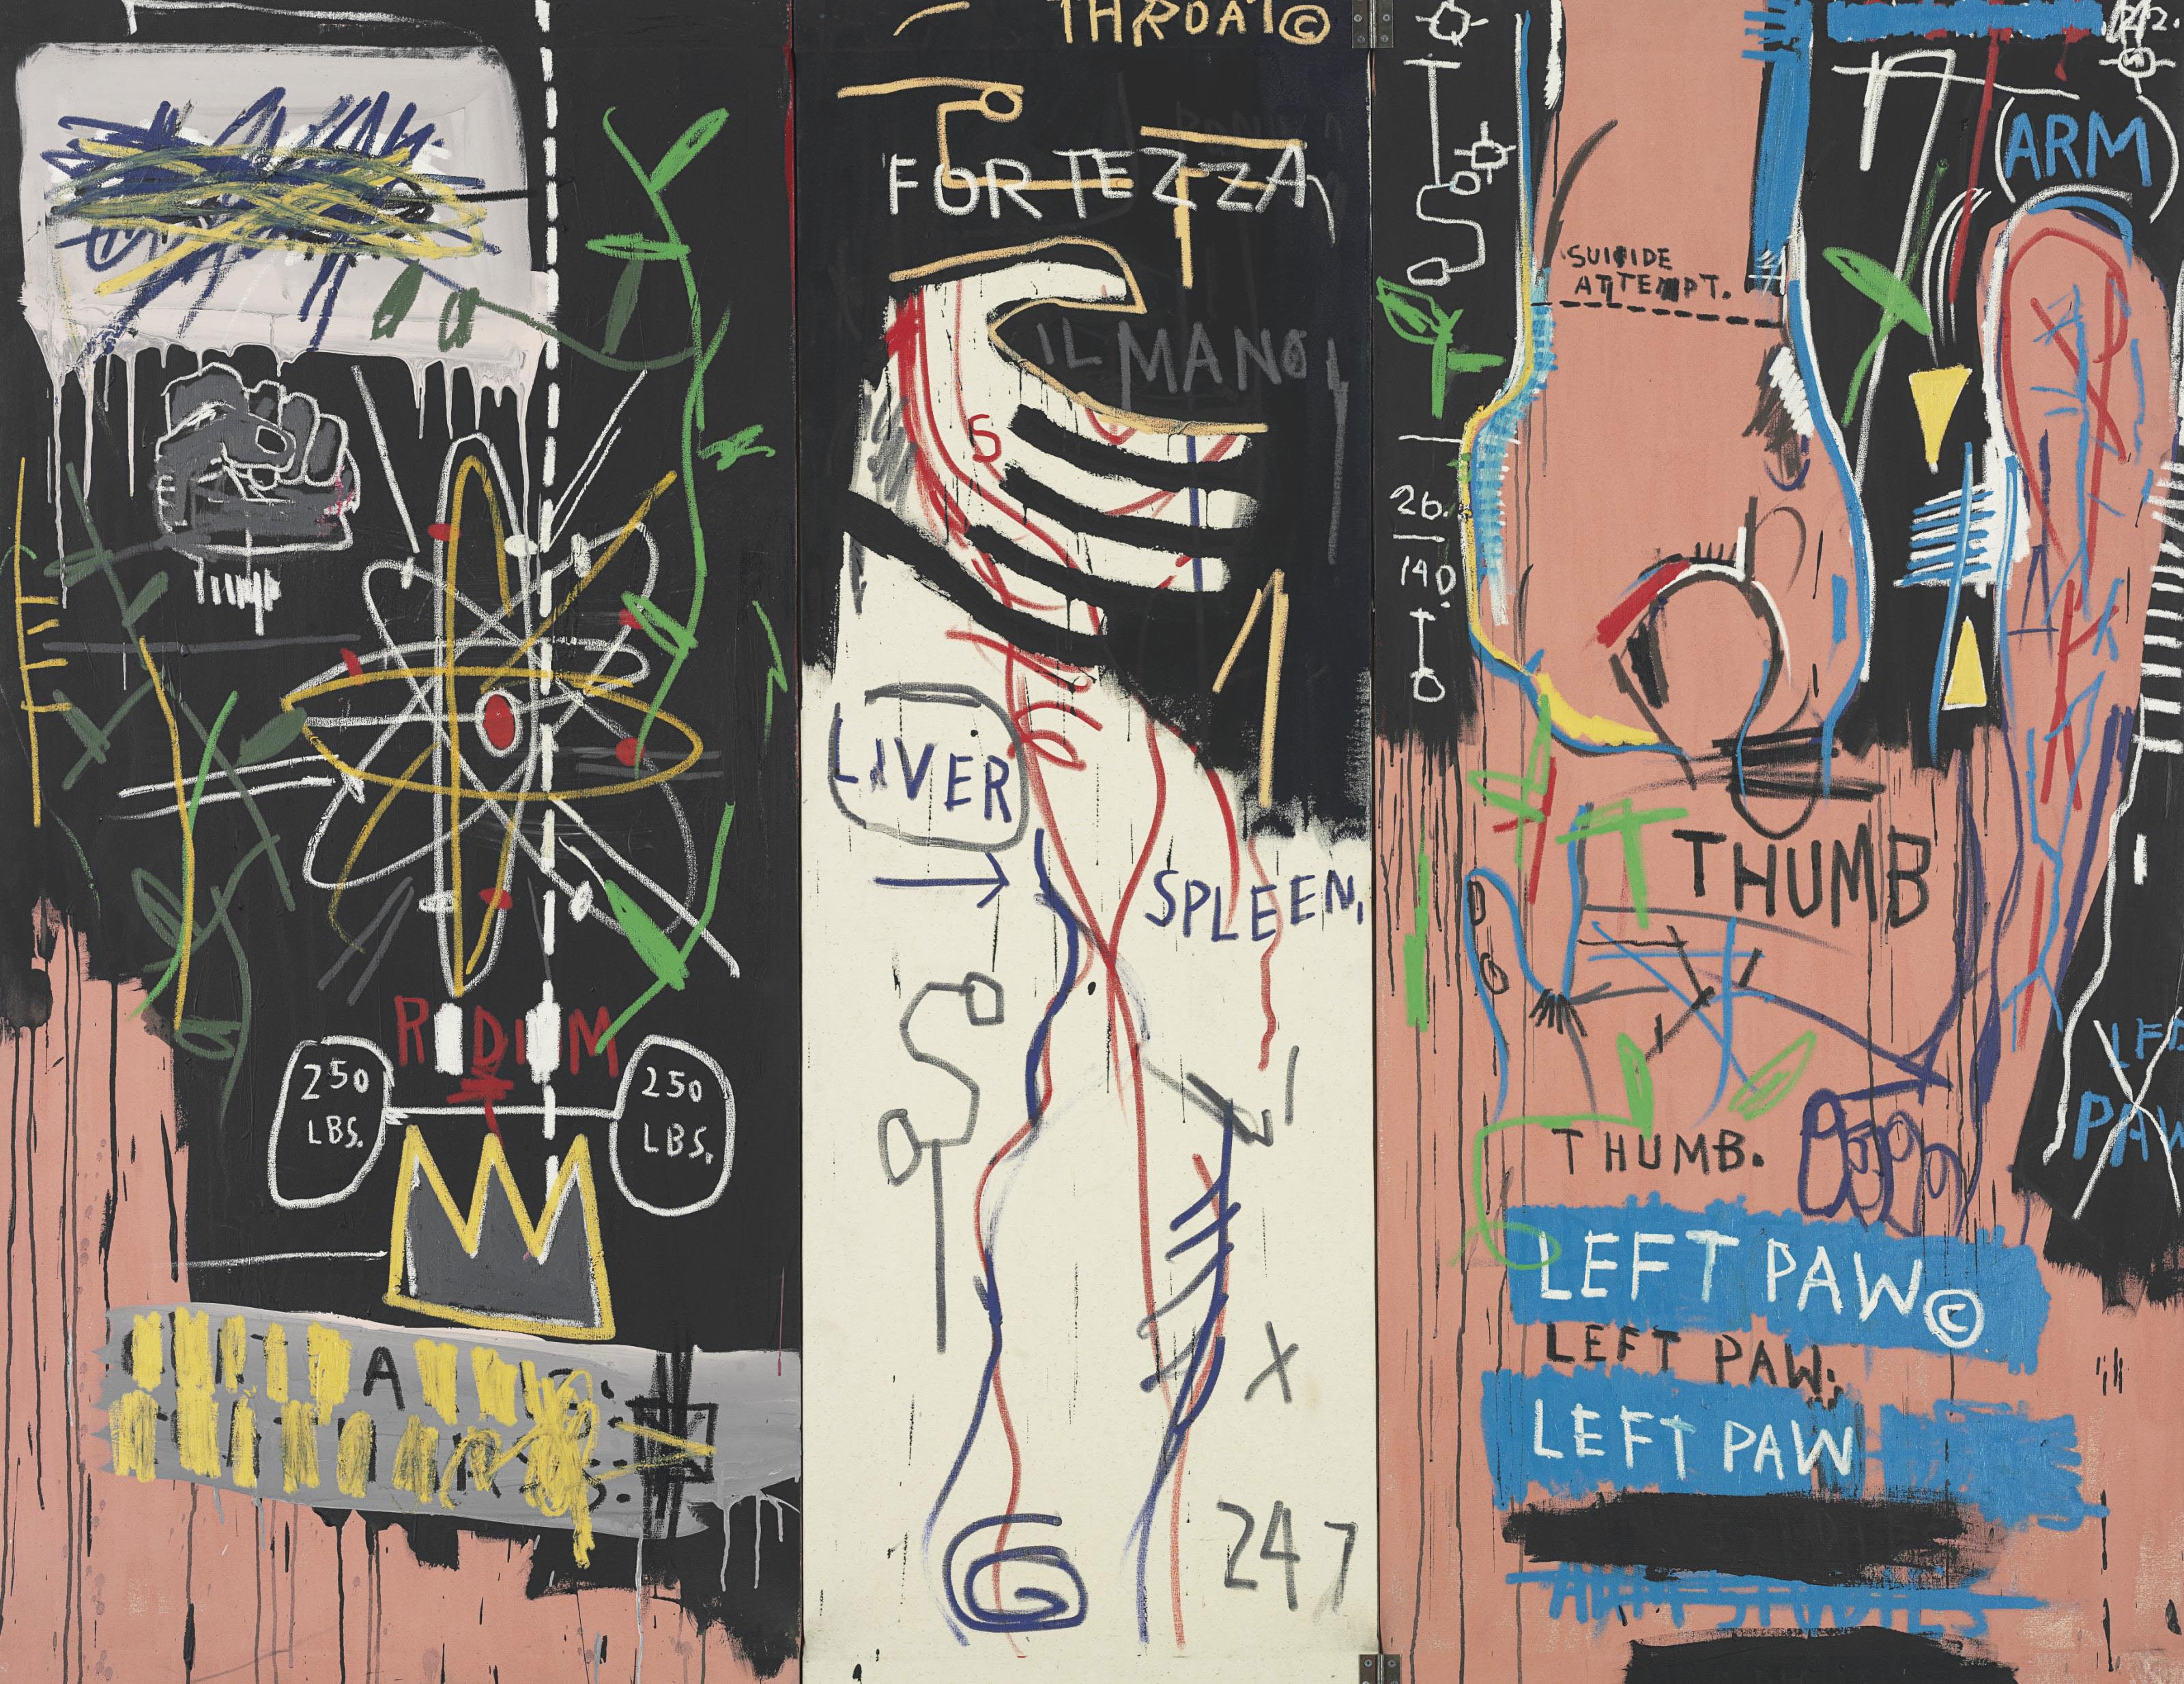 R DI M
250
LBS.
250
LBS.
A
THROAT©
FORTEZZA
IL MANO
S
LIVER
SPLEEN,
X
247
(ARM)
SUICIDE
ATTEMPT.
26.
140
THUMB
THUMB.
PAW
LEFT PAW©
LEFT PAW.
LEFT PAW